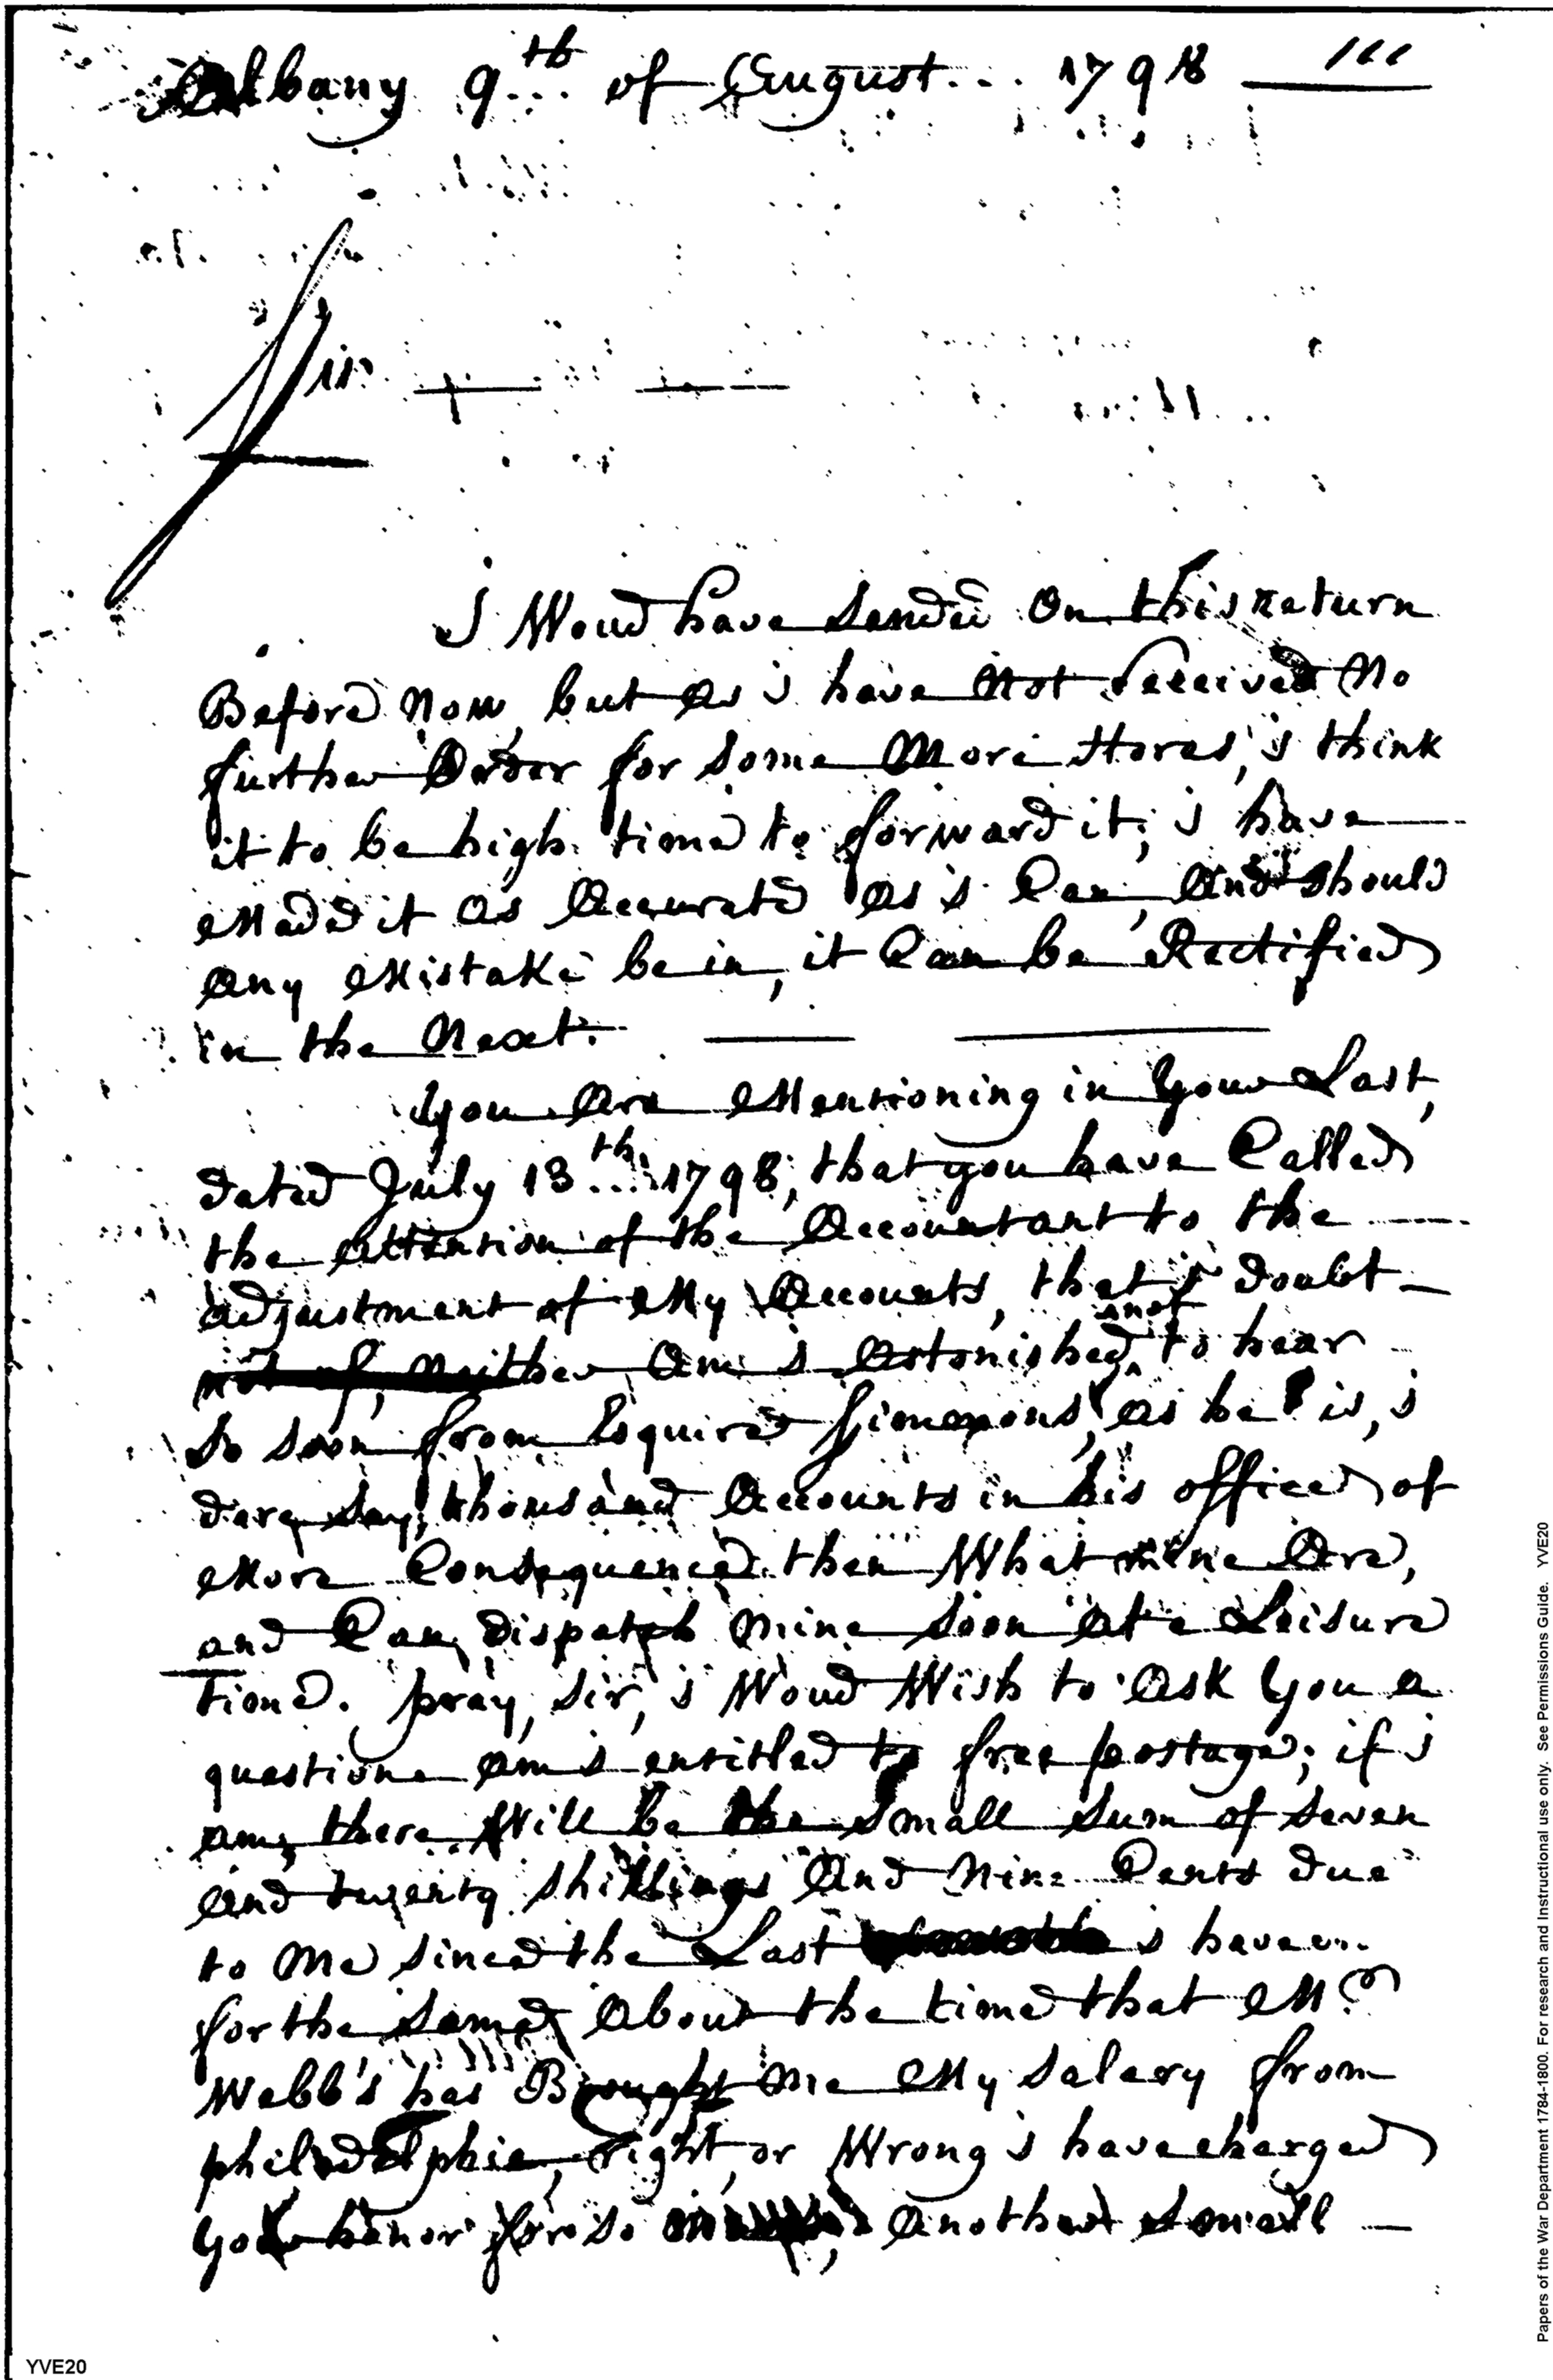 Albany 9th of August... 1798
Sir
I Woud have Sended On this return
Before Now, but as i have Not received No
further Order for Some More Stores, i think
it to be high time to forward it; i have
Made it as Accurate as i Can, And should
any Mistake be in, it Can be Rectified
in the Next.
You Are Mentioning in Your Last,
dated July 13th 1798, that you have Called
the Attention of the Accountant to the
adjustment of My Accounts, that i doubt
not of, Neither Am i Astonished not to hear
So Soon from Esquire Simmons, as he is, i
dare Say, thousand Accounts in his office of
More Consequence then What mine Are,
and Can dispatch mine Soon At a Leisure
Time. pray, Sir, i Woud Wish to Ask You a
question am i entitled to free postage; if i
am, there Will be the Small Sum of Seven
and twenty Shillings And Nine Cents due
to Me Since the Last i have
for the Same About the time that Mr
Webb's has Brought me My Salary from
philadelphia, right, or Wrong i have charged
Your honor for So Another Small
YVE20
Papers of the War Department 1784-1800. For research and Instructional use only. See Permissions Guide. YVE20